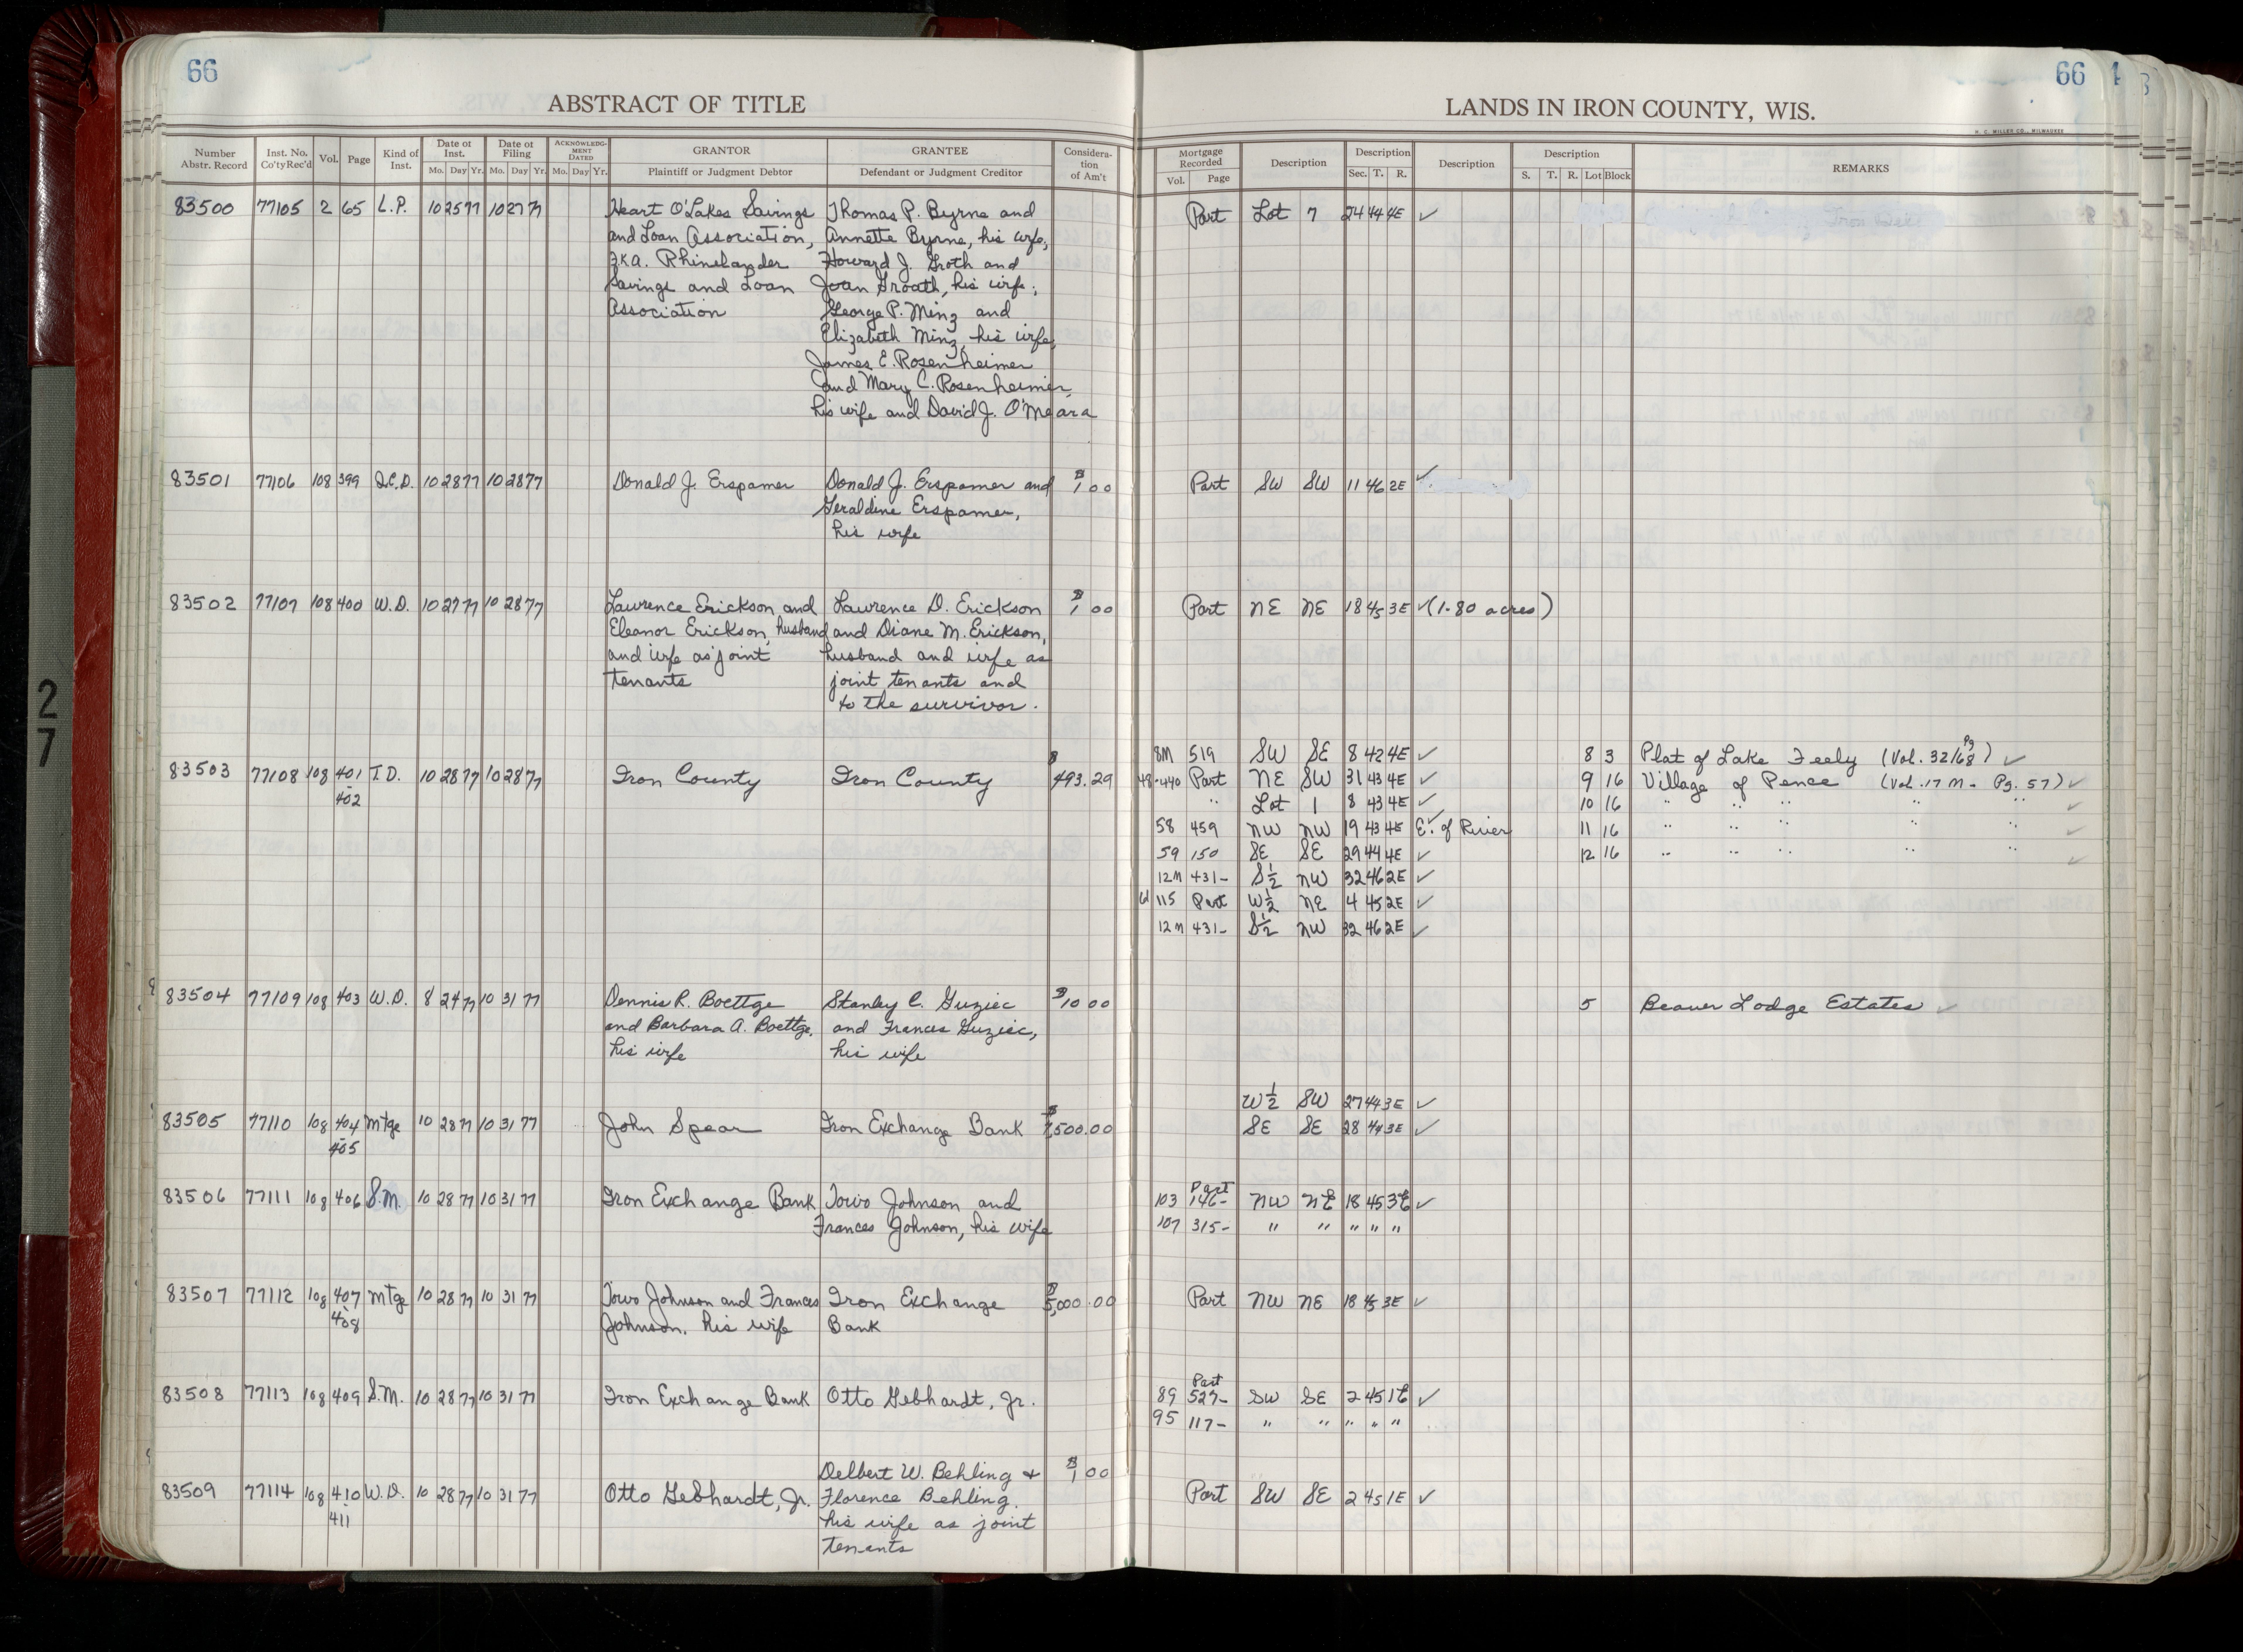 66
ABSTRACT OF TITLE
Number Abstr. Record
Inst. No. Co'ty Rec'd
Vol.
Page
Kind of Inst.
Date of Inst. Mo. Day Yr.
Date of Filing Mo. Day Yr.
ACKNOWLEDGMENT DATED Mo. Day Yr.
GRANTOR Plaintiff or Judgment Debtor
GRANTEE Defendant or Judgment Creditor
Consideration of Am't
66
LANDS IN IRON COUNTY, WIS.
H. C. MILLER CO., MILWAUKEE
Mortgage Recorded Vol. Page
Description
Description Sec. T. R.
Description
Description S. T. R. Lot Block
REMARKS
83500 77105 2 65 L.P. 10 25 77 10 27 77 Heart O'Lakes Savings Thomas P. Byrne and Part Lot 7 24 44 4E ✓
and Loan Association, Annette Byrne, his wife,
F.K.A. Rhinelander Howard J. Groth and
Savings and Loan Joan Groath, his wife,
Association George P. Minz and
Elizabeth Minz, his wife,
James E. Rosenheimer
and Mary C. Rosenheimer,
his wife and David J. O'Meara
83501 77106 108 399 Q.C.D. 10 28 77 10 28 77 Donald J. Erspamer Donald J. Erspamer and $1 00 Part SW SW 11 46 2E ✓
Geraldine Erspamer,
his wife
83502 77107 108 400 W.D. 10 27 77 10 28 77 Lawrence Erickson and Lawrence D. Erickson $1 00 Part NE NE 18 45 3E ✓ (1.80 acres)
Eleanor Erickson, husband and Diane M. Erickson,
and wife as joint husband and wife as
tenants joint tenants and
to the survivor.
8M 519 SW SE 8 42 4E ✓ 8 3 Plat of Lake Feely (Vol. 32/Pg 68) ✓
83503 77108 108 401-402 T.D. 10 28 77 10 28 77 Iron County Iron County $493.29 48-440 Part NE SW 31 43 4E ✓ 9 16 Village of Pence (Vol. 17 M - Pg. 57) ✓
" Lot 1 8 43 4E ✓ 10 16 " " " " " ✓
58 459 NW NW 19 43 4E ✓ E. of River 11 16 " " " " " ✓
59 150 SE SE 29 44 4E ✓ 12 16 " " " " " ✓
12M 431- S½ NW 32 46 2E ✓
61 115 Part W½ NE 4 45 2E ✓
12M 431- S½ NW 32 46 2E ✓
83504 77109 108 403 W.D. 8 24 77 10 31 77 Dennis R. Boettge Stanley C. Guziec $10 00 5 Beaver Lodge Estates ✓
and Barbara A. Boettge, and Frances Guziec,
his wife his wife
W½ SW 27 44 3E ✓
83505 77110 108 404-405 Mtge 10 28 77 10 31 77 John Spear Iron Exchange Bank $7,500.00 SE SE 28 44 3E ✓
83506 77111 108 406 S.M. 10 28 77 10 31 77 Iron Exchange Bank Toivo Johnson and 103 Part 146- NW NE 18 45 3E ✓
Frances Johnson, his wife 107 315- " " " " "
83507 77112 108 407-408 Mtge 10 28 77 10 31 77 Toivo Johnson and Frances Iron Exchange $5,000.00 Part NW NE 18 45 3E ✓
Johnson, his wife Bank
83508 77113 108 409 S.M. 10 28 77 10 31 77 Iron Exchange Bank Otto Gebhardt, Jr. 89 Part 527- SW SE 2 45 1E ✓
95 117- " " " " "
Delbert W. Behling + $1 00
83509 77114 108 410-411 W.D. 10 28 77 10 31 77 Otto Gebhardt, Jr. Florence Behling, Part SW SE 2 45 1E ✓
his wife as joint
tenants
27